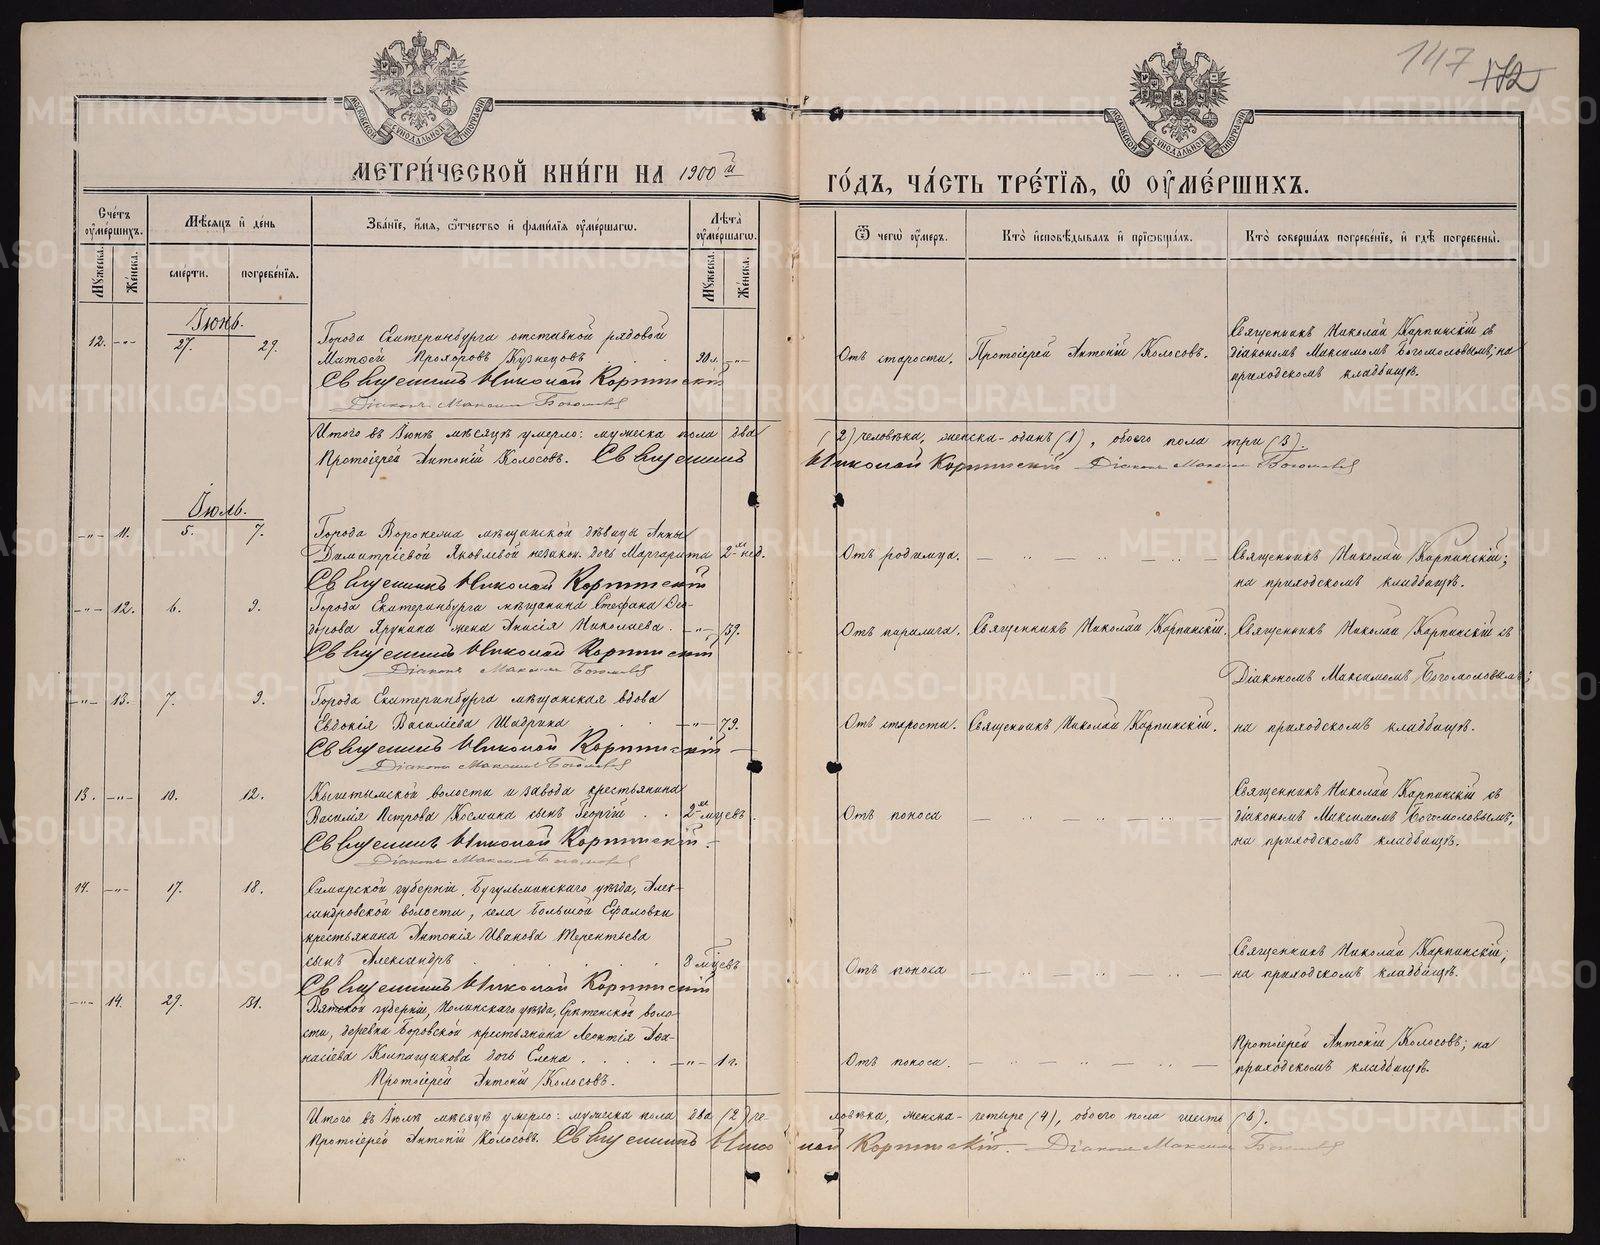 147 172
МОСКОВСКОЙ СѴНОДАЛЬНОЙ ТИПОГРАФІИ
МОСКОВСКОЙ СѴНОДАЛЬНОЙ ТИПОГРАФІИ
МЕТРИ́ЧЕСКОЙ КНИ́ГИ НА 1900й
ГО́ДЪ, ЧА́СТЬ ТРЕ́ТІѦ, Ѡ҆ ОУ҆МЕ́РШИХЪ.
Сче́тъ оу҆ме́ршихъ.
Мѣ́сяцъ и҆ де́нь
Зва́ніе, и҆́мя, ѻ҆́тчество и҆ фами́лія оу҆ме́ршагѡ.
Лѣ́та оу҆ме́ршагѡ.
Ѿ чегѡ̀ оу҆́меръ.
Кто̀ и҆сповѣ́дывалъ и҆ прїѡбща́лъ.
Кто̀ соверша́лъ погребе́ніе, и҆ гдѣ̀ погребены̀.
Мꙋ́жеска. Же́нска. сме́рти. погребе́нія. Мꙋ́жеска. Же́нска.
Іюнь.
12. -"- 27. 29. Города Екатеринбурга отставной рядовой
Матѳей Прохоровъ Кузнецовъ . . . 90 л. -"-
Священникъ Николай Карпинскій
Діаконъ Максимъ Богомоловъ
Отъ старости. Протоіерей Антоній Колосовъ.
Священникъ Николай Карпинскій съ
діакономъ Максимомъ Богомоловымъ; на
приходскомъ кладбищѣ.
Итого въ Іюнѣ мѣсяцѣ умерло: мужеска пола два (2) человѣка, женска-одинъ (1), обоего пола три (3).
Протоіерей Антоній Колосовъ. Священникъ Николай Карпинскій Діаконъ Максимъ Богомоловъ
Іюль.
-"- 11. 5. 7. Города Воронежа мѣщанской дѣвицы Анны
Димитріевой Яковлевой незакон. дочь Маргарита 2хъ нед.
Священникъ Николай Карпинскій
Отъ родимца. Священникъ Николай Карпинскій;
на приходскомъ кладбищѣ.
-"- 12. 6. 9. Города Екатеринбурга мѣщанина Стефана Ѳео-
дорова Ярунина жена Анисія Николаева. -"- 59.
Священникъ Николай Карпинскій
Діаконъ Максимъ Богомоловъ
Отъ паралича. Священникъ Николай Карпинскій. Священникъ Николай Карпинскій съ
Діакономъ Максимомъ Богомоловымъ;
-"- 13. 7. 9. Города Екатеринбурга мѣщанская вдова
Евдокія Василіева Шадрина . . . -"- 79.
Священникъ Николай Карпинскій
Діаконъ Максимъ Богомоловъ
Отъ старости. Священникъ Николай Карпинскій. на приходскомъ кладбищѣ.
13. -"- 10. 12. Кыштымской волости и завода крестьянина
Василія Петрова Космина сынъ Георгій . . 2хъ мцевъ.
Священникъ Николай Карпинскій.
Діаконъ Максимъ Богомоловъ
Отъ поноса Священникъ Николай Карпинскій съ
діакономъ Максимомъ Богомоловымъ;
на приходскомъ кладбищѣ.
14. -"- 17. 18. Самарской губерніи, Бугульминскаго уѣзда, Алек-
сандровской волости, села Большой Ефаловки
крестьянина Антонія Иванова Терентьева
сынъ Александръ . . . 8 мцевъ
Священникъ Николай Карпинскій
Отъ поноса Священникъ Николай Карпинскій;
на приходскомъ кладбищѣ.
-"- 14. 29. 31. Вятской губерніи, Нолинскаго уѣзда, воло-
сти, деревни Боровской крестьянина Леонтія Аѳа-
насіева Колпащикова дочь Елена . . . -"- 1 г.
Протоіерей Антоній Колосовъ.
Отъ поноса. Протоіерей Антоній Колосовъ; на
приходскомъ кладбищѣ.
Итого въ Іюлѣ мѣсяцѣ умерло: мужеска пола два (2) че-ловѣка, женска-четыре (4), обоего пола шесть (6).
Протоіерей Антоній Колосовъ. Священникъ Николай Карпинскій. Діаконъ Максимъ Богомоловъ
METRIKI.GASO-URAL.RU